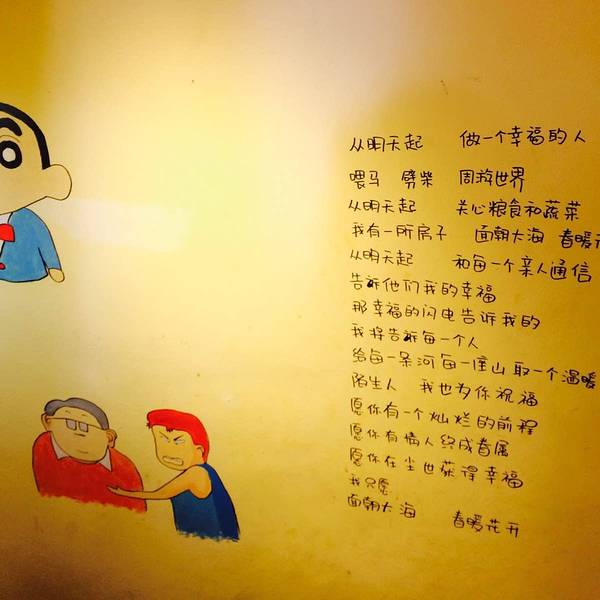 从明天起 做一个幸福的人
喂马 劈柴 周游世界
从明天起 关心粮食和蔬菜
我有一所房子 面朝大海 春暖
从明天起 和每一个亲人通信
告诉他们我的幸福
那幸福的闪电告诉我的
我将告诉每一个人
给每一条河每一座山取一个温暖
陌生人 我也为你祝福
愿你有一个灿烂的前程
愿你有情人终成眷属
愿你在尘世获得幸福
我只愿
面朝大海 春暖花开